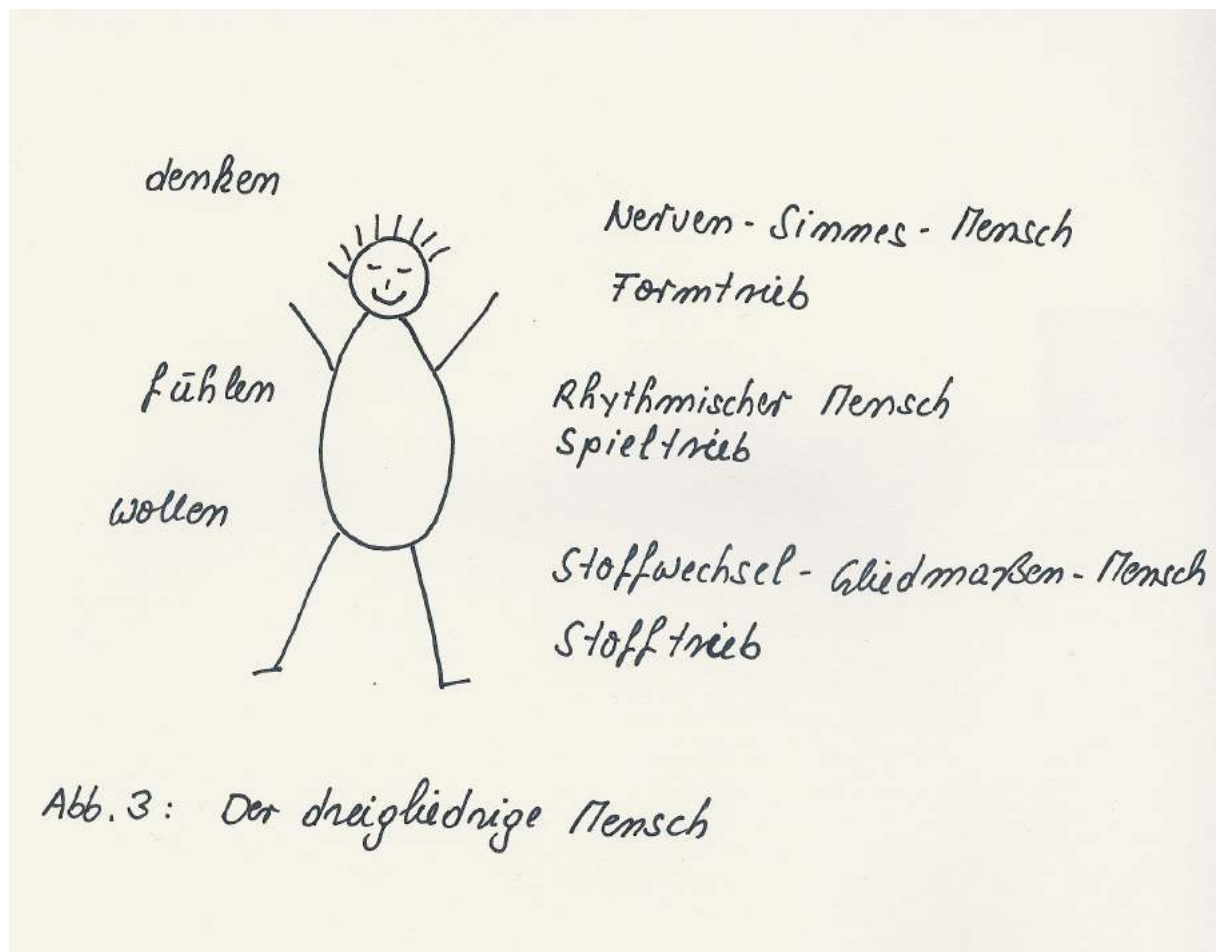 denken
Nerven - Sinnes - Mensch
Formtrieb
fühlen
Rhythmischer Mensch
Spieltrieb
wollen
Stoffwechsel - Gliedmaßen - Mensch
Stofftrieb
Abb. 3: Der dreigliedrige Mensch